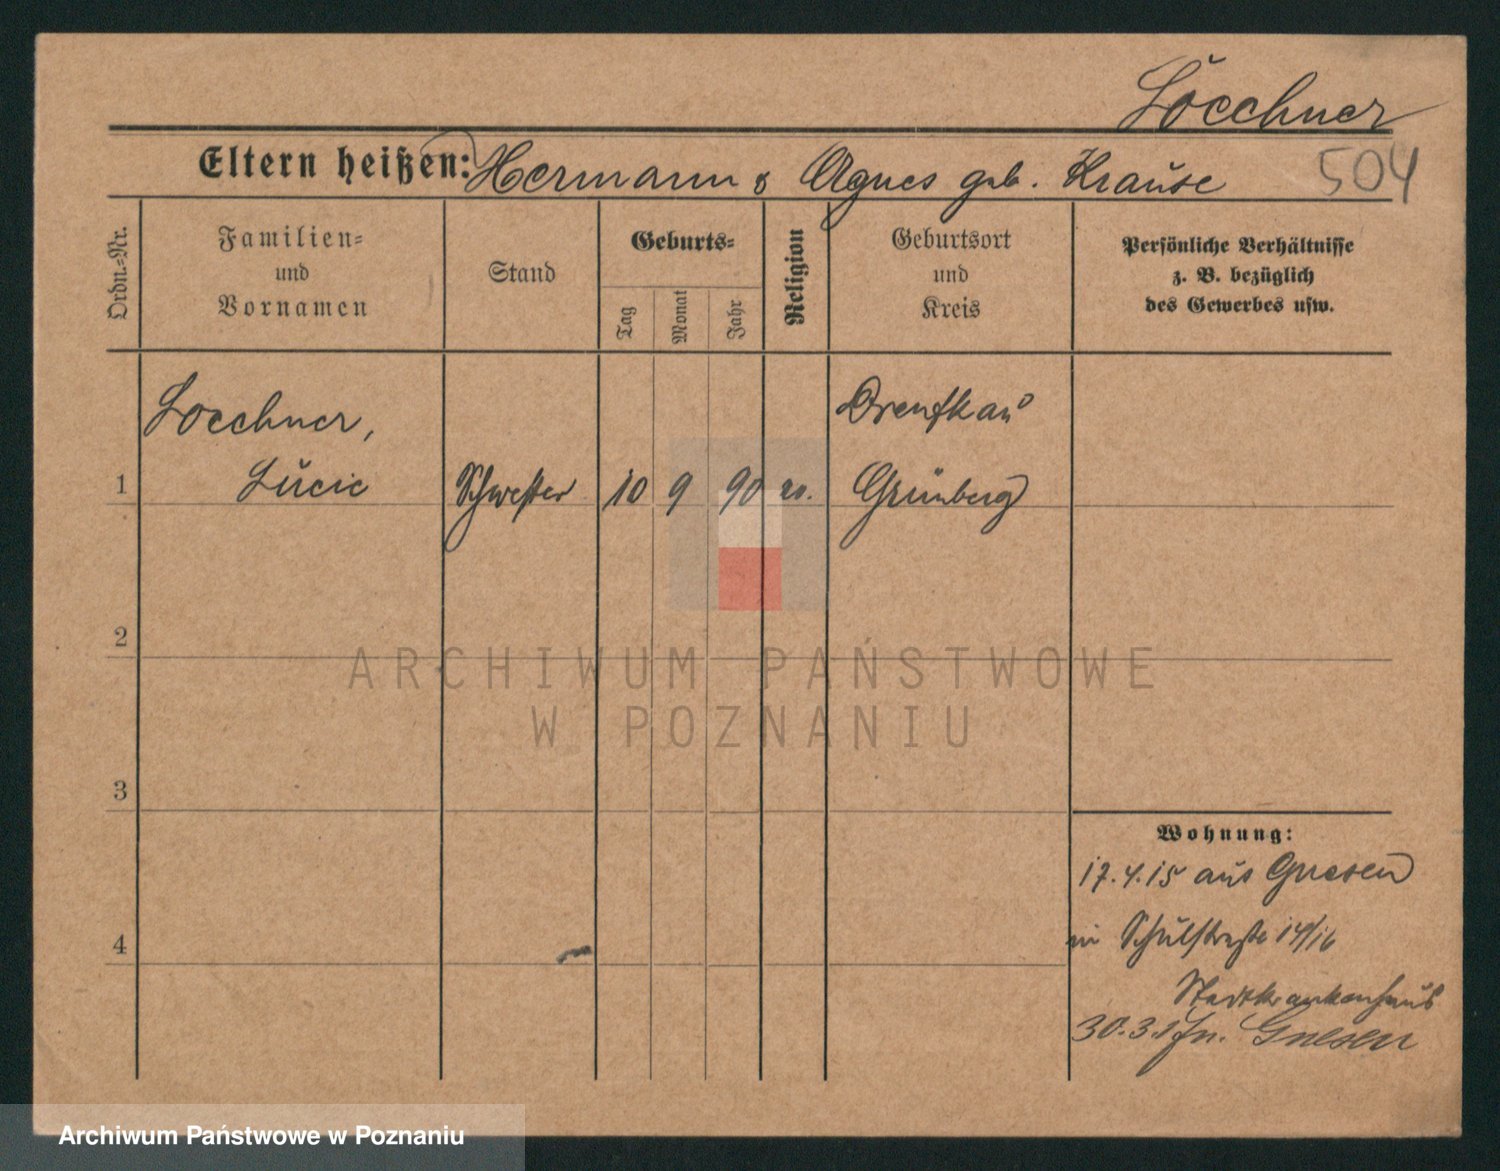 Loechner
Eltern heißen: Hermann & Agnes geb. Krause 504
Ordn.-Nr.
Familien-
und
Vornamen
Stand
Geburts-
Tag
Monat
Jahr
Religion
Geburtsort
und
Kreis
Persönliche Verhältnisse
z. B. bezüglich
des Gewerbes usw.
Loechner,
Lucie
1 Schwester 10 9 90
Grünberg
2
3
4
ARCHIWUM PAŃSTWOWE
W POZNANIU
Wohnung:
17.4.15 aus Gnesen
in Schulstraße 14/16
Stadtkrankenhaus
30.3. Gnesen
Archiwum Państwowe w Poznaniu